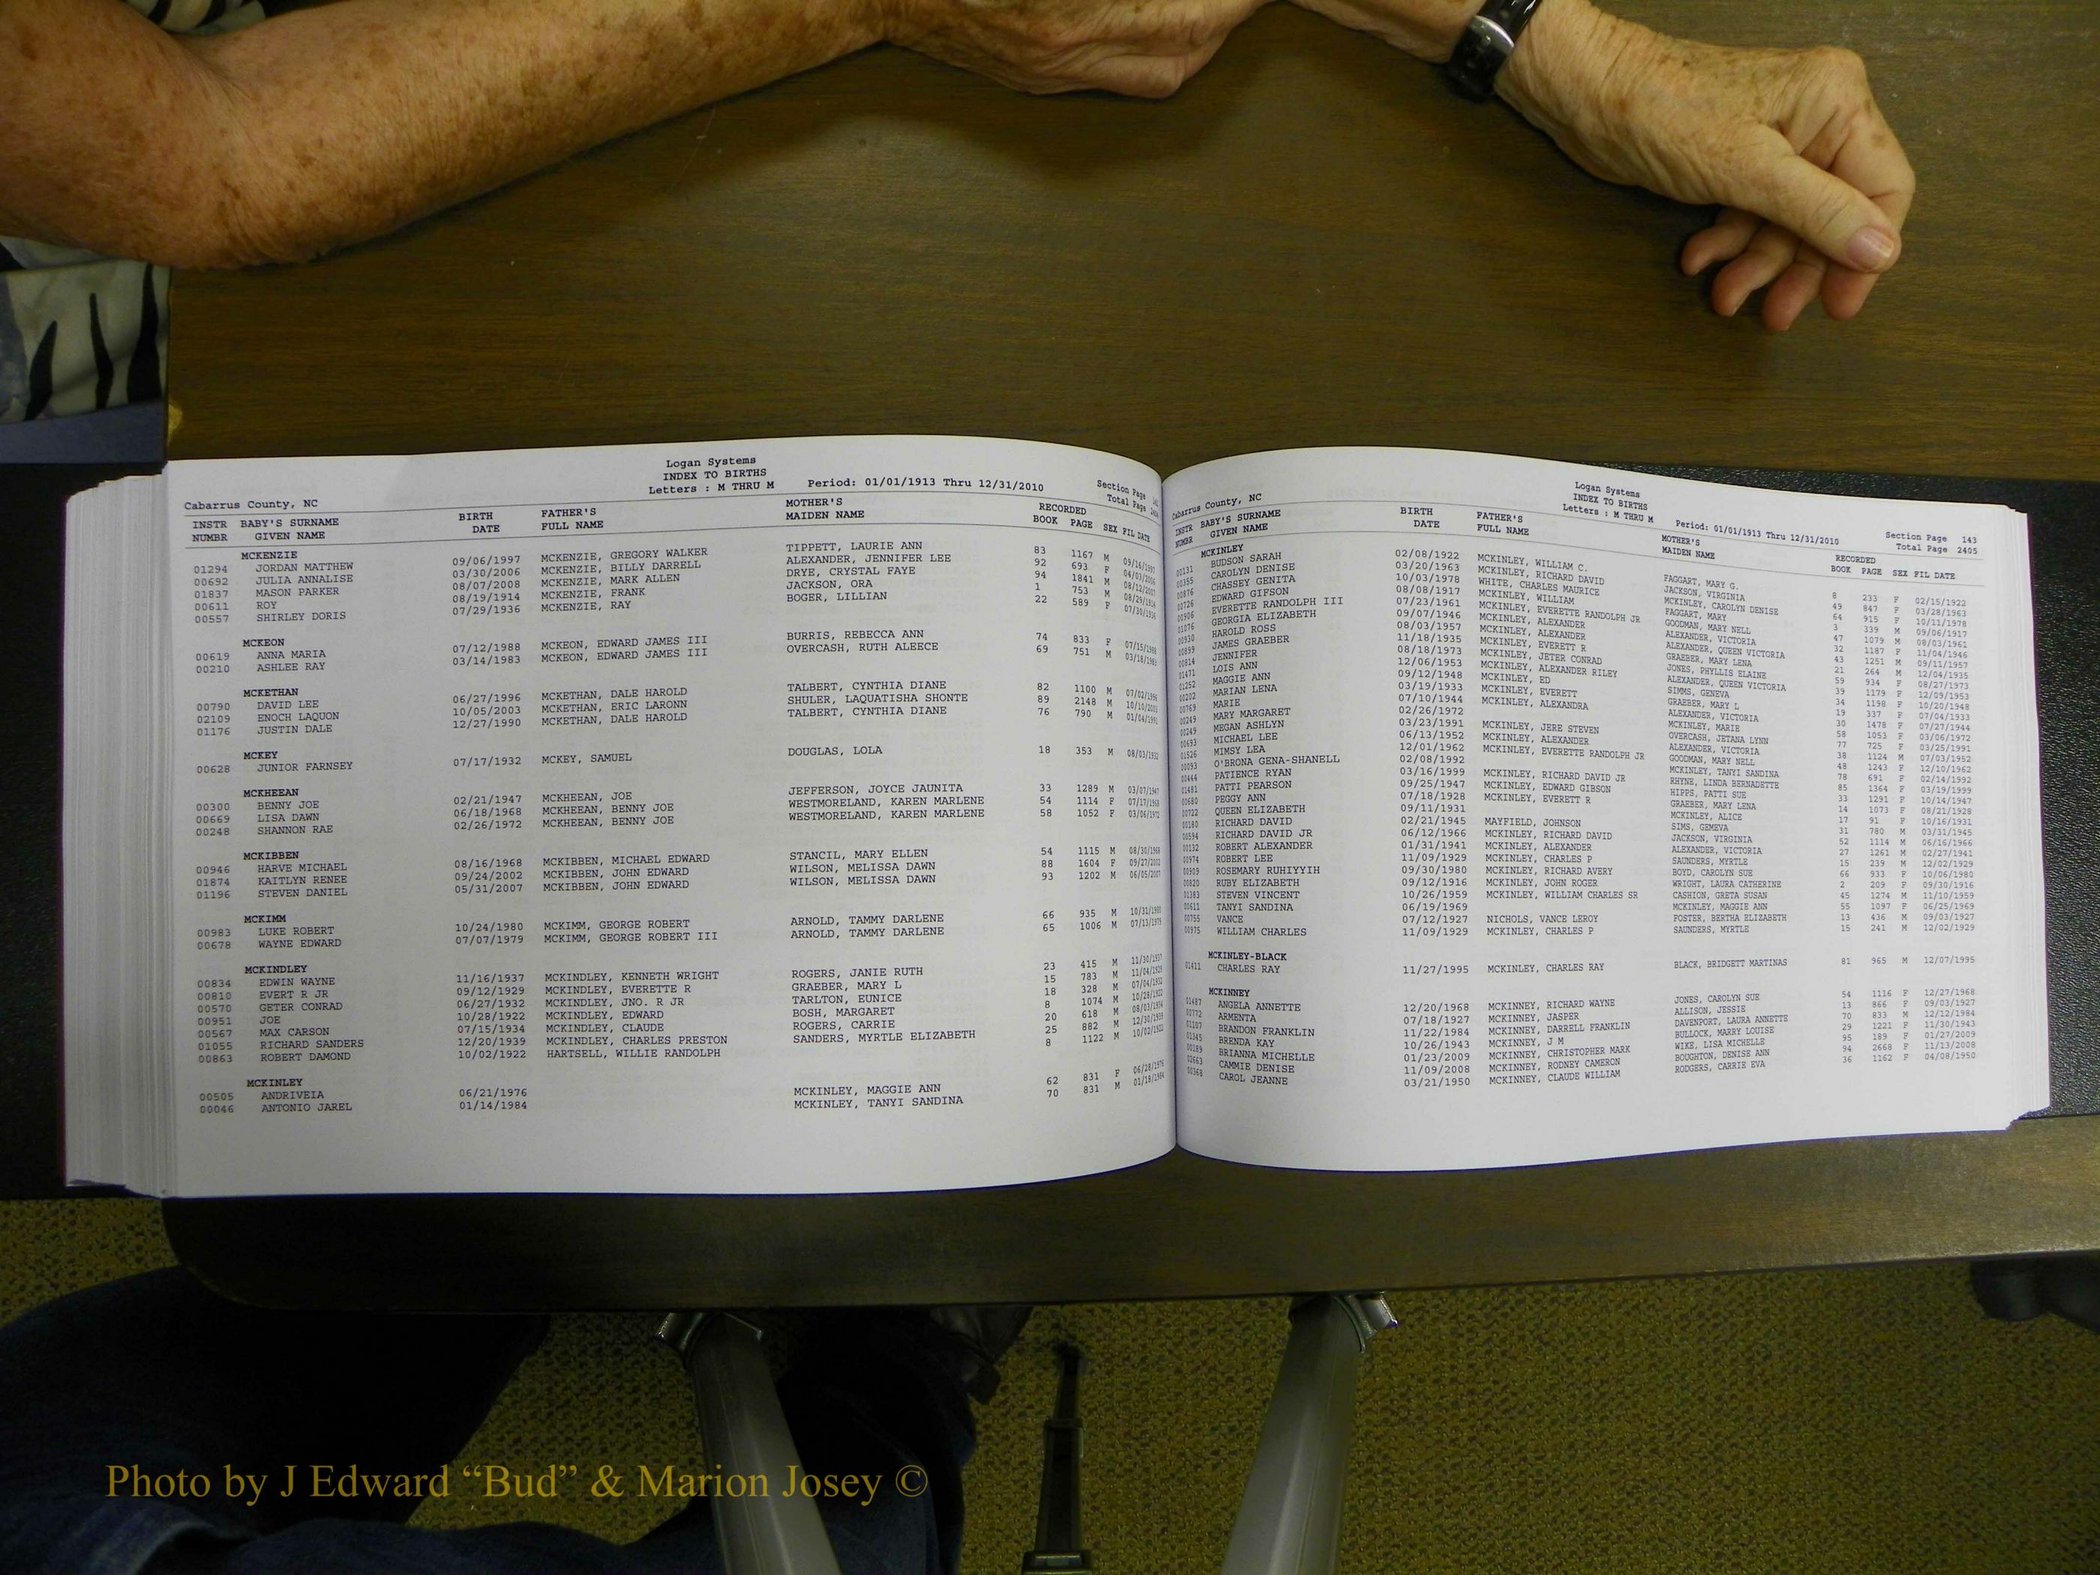 Logan Systems
INDEX TO BIRTHS
Cabarrus County, NC Letters : M THRU M Period: 01/01/1913 Thru 12/31/2010 Section Page
Total Page
INSTR BABY'S SURNAME BIRTH FATHER'S MOTHER'S RECORDED
NUMBR GIVEN NAME DATE FULL NAME MAIDEN NAME BOOK PAGE SEX FIL DATE
MCKENZIE
01294 JORDAN MATTHEW 09/06/1997 MCKENZIE, GREGORY WALKER TIPPETT, LAURIE ANN 83 1167 M 09/16/1997
00692 JULIA ANNALISE 03/30/2006 MCKENZIE, BILLY DARRELL ALEXANDER, JENNIFER LEE 92 693 F 04/03/2006
01837 MASON PARKER 08/07/2008 MCKENZIE, MARK ALLEN DRYE, CRYSTAL FAYE 94 1841 M
00611 ROY 08/19/1914 MCKENZIE, FRANK JACKSON, ORA 1 753 M
00557 SHIRLEY DORIS 07/29/1936 MCKENZIE, RAY BOGER, LILLIAN 22 589 F 07/30/1936
MCKEON
00619 ANNA MARIA 07/12/1988 MCKEON, EDWARD JAMES III BURRIS, REBECCA ANN 74 833 F 07/15/1988
00210 ASHLEE RAY 03/14/1983 MCKEON, EDWARD JAMES III OVERCASH, RUTH ALEECE 69 751 M 03/18/1983
MCKETHAN
00790 DAVID LEE 06/27/1996 MCKETHAN, DALE HAROLD TALBERT, CYNTHIA DIANE 82 1100 M 07/02/1996
02109 ENOCH LAQUON 10/05/2003 MCKETHAN, ERIC LARONN SHULER, LAQUATISHA SHONTE 89 2148 M 10/10/2003
01176 JUSTIN DALE 12/27/1990 MCKETHAN, DALE HAROLD TALBERT, CYNTHIA DIANE 76 790 M 01/04/1991
MCKEY
00628 JUNIOR FARNSEY 07/17/1932 MCKEY, SAMUEL DOUGLAS, LOLA 18 353 M 08/03/1932
MCKHEEAN
00300 BENNY JOE 02/21/1947 MCKHEEAN, JOE JEFFERSON, JOYCE JAUNITA 33 1289 M 03/07/1947
00669 LISA DAWN 06/18/1968 MCKHEEAN, BENNY JOE WESTMORELAND, KAREN MARLENE 54 1114 F 07/17/1968
00248 SHANNON RAE 02/26/1972 MCKHEEAN, BENNY JOE WESTMORELAND, KAREN MARLENE 58 1052 F 03/06/1972
MCKIBBEN
00946 HARVE MICHAEL 08/16/1968 MCKIBBEN, MICHAEL EDWARD STANCIL, MARY ELLEN 54 1115 M 08/30/1968
01874 KAITLYN RENEE 09/24/2002 MCKIBBEN, JOHN EDWARD WILSON, MELISSA DAWN 88 1604 F 09/27/2002
01196 STEVEN DANIEL 05/31/2007 MCKIBBEN, JOHN EDWARD WILSON, MELISSA DAWN 93 1202 M 06/05/2007
MCKIMM
00983 LUKE ROBERT 10/24/1980 MCKIMM, GEORGE ROBERT ARNOLD, TAMMY DARLENE 66 935 M 10/31/1980
00678 WAYNE EDWARD 07/07/1979 MCKIMM, GEORGE ROBERT III ARNOLD, TAMMY DARLENE 65 1006 M 07/13/1979
MCKINDLEY
00834 EDWIN WAYNE 11/16/1937 MCKINDLEY, KENNETH WRIGHT ROGERS, JANIE RUTH 23 415 M 11/30/1937
00810 EVERT R JR 09/12/1929 MCKINDLEY, EVERETTE R GRAEBER, MARY L 15 783 M 11/04/1929
00570 GETER CONRAD 06/27/1932 MCKINDLEY, JNO. R JR TARLTON, EUNICE 18 328 M 07/04/1932
00951 JOE 10/28/1922 MCKINDLEY, EDWARD BOSH, MARGARET 8 1074 M 10/28/1922
00567 MAX CARSON 07/15/1934 MCKINDLEY, CLAUDE ROGERS, CARRIE 20 618 M 08/03/1934
01055 RICHARD SANDERS 12/20/1939 MCKINDLEY, CHARLES PRESTON SANDERS, MYRTLE ELIZABETH 25 882 M 12/30/1939
00863 ROBERT DAMOND 10/02/1922 HARTSELL, WILLIE RANDOLPH 8 1122 M 10/02/1922
MCKINLEY
00505 ANDRIVEIA 06/21/1976 MCKINLEY, MAGGIE ANN 62 831 F 06/28/1976
00046 ANTONIO JAREL 01/14/1984 MCKINLEY, TANYI SANDINA 70 831 M 01/18/1984
Logan Systems
INDEX TO BIRTHS
Cabarrus County, NC Letters : M THRU M Period: 01/01/1913 Thru 12/31/2010 Section Page 143
Total Page 2405
INSTR BABY'S SURNAME BIRTH FATHER'S MOTHER'S RECORDED
NUMBR GIVEN NAME DATE FULL NAME MAIDEN NAME BOOK PAGE SEX FIL DATE
MCKINLEY
00131 BUDSON SARAH 02/08/1922 MCKINLEY, WILLIAM C. FAGGART, MARY G. 8 233 F 02/15/1922
00355 CAROLYN DENISE 03/20/1963 MCKINLEY, RICHARD DAVID JACKSON, VIRGINIA 49 847 F 03/28/1963
00876 CHASSEY GENITA 10/03/1978 WHITE, CHARLES MAURICE MCKINLEY, CAROLYN DENISE 64 915 F 10/11/1978
00726 EDWARD GIFSON 08/08/1917 MCKINLEY, WILLIAM FAGGART, MARY 3 339 M 09/06/1917
00906 EVERETTE RANDOLPH III 07/23/1961 MCKINLEY, EVERETTE RANDOLPH JR GOODMAN, MARY NELL 47 1079 M 08/03/1961
01076 GEORGIA ELIZABETH 09/07/1946 MCKINLEY, ALEXANDER ALEXANDER, VICTORIA 32 1187 F 11/04/1946
00930 HAROLD ROSS 08/03/1957 MCKINLEY, ALEXANDER ALEXANDER, QUEEN VICTORIA 43 1251 M 09/11/1957
00899 JAMES GRAEBER 11/18/1935 MCKINLEY, EVERETT R GRAEBER, MARY LENA 21 264 M 12/04/1935
00814 JENNIFER 08/18/1973 MCKINLEY, JETER CONRAD JONES, PHYLLIS ELAINE 59 934 F 08/27/1973
01471 LOIS ANN 12/06/1953 MCKINLEY, ALEXANDER RILEY ALEXANDER, QUEEN VICTORIA 39 1179 F 12/09/1953
01252 MAGGIE ANN 09/12/1948 MCKINLEY, ED SIMMS, GENEVA 34 1198 F 10/20/1948
00202 MARIAN LENA 03/19/1933 MCKINLEY, EVERETT GRAEBER, MARY L 19 337 F 07/04/1933
00769 MARIE 07/10/1944 MCKINLEY, ALEXANDRA ALEXANDER, VICTORIA 30 1478 F 07/27/1944
00249 MARY MARGARET 02/26/1972 MCKINLEY, MARIE 58 1053 F 03/06/1972
00249 MEGAN ASHLYN 03/23/1991 MCKINLEY, JERE STEVEN OVERCASH, JETANA LYNN 77 725 F 03/25/1991
00693 MICHAEL LEE 06/13/1952 MCKINLEY, ALEXANDER ALEXANDER, VICTORIA 38 1124 M 07/03/1952
01526 MIMSY LEA 12/01/1962 MCKINLEY, EVERETTE RANDOLPH JR GOODMAN, MARY NELL 48 1243 F 12/10/1962
00093 O'BRONA GENA-SHANELL 02/08/1992 MCKINLEY, TANYI SANDINA 78 691 F 02/14/1992
00444 PATIENCE RYAN 03/16/1999 MCKINLEY, RICHARD DAVID JR RHYNE, LINDA BERNADETTE 85 1364 F 03/19/1999
01481 PATTI PEARSON 09/25/1947 MCKINLEY, EDWARD GIBSON HIPPS, PATTI SUE 33 1291 F 10/14/1947
00680 PEGGY ANN 07/18/1928 MCKINLEY, EVERETT R GRAEBER, MARY LENA 14 1073 F 08/21/1928
00722 QUEEN ELIZABETH 09/11/1931 MCKINLEY, ALICE 17 91 F 10/16/1931
00180 RICHARD DAVID 02/21/1945 MAYFIELD, JOHNSON SIMS, GEMEVA 31 780 M 03/31/1945
00594 RICHARD DAVID JR 06/12/1966 MCKINLEY, RICHARD DAVID JACKSON, VIRGINIA 52 1114 M 06/16/1966
00132 ROBERT ALEXANDER 01/31/1941 MCKINLEY, ALEXANDER ALEXANDER, VICTORIA 27 1261 M 02/27/1941
00974 ROBERT LEE 11/09/1929 MCKINLEY, CHARLES P SAUNDERS, MYRTLE 15 239 M 12/02/1929
00909 ROSEMARY RUHIYYIH 09/30/1980 MCKINLEY, RICHARD AVERY BOYD, CAROLYN SUE 66 933 F 10/06/1980
00820 RUBY ELIZABETH 09/12/1916 MCKINLEY, JOHN ROGER WRIGHT, LAURA CATHERINE 2 209 F 09/30/1916
01383 STEVEN VINCENT 10/26/1959 MCKINLEY, WILLIAM CHARLES SR CASHION, GRETA SUSAN 45 1274 M 11/10/1959
00611 TANYI SANDINA 06/19/1969 MCKINLEY, MAGGIE ANN 55 1097 F 06/25/1969
00755 VANCE 07/12/1927 NICHOLS, VANCE LEROY FOSTER, BERTHA ELIZABETH 13 436 M 09/03/1927
00975 WILLIAM CHARLES 11/09/1929 MCKINLEY, CHARLES P SAUNDERS, MYRTLE 15 241 M 12/02/1929
MCKINLEY-BLACK
01411 CHARLES RAY 11/27/1995 MCKINLEY, CHARLES RAY BLACK, BRIDGETT MARTINAS 81 965 M 12/07/1995
MCKINNEY
01487 ANGELA ANNETTE 12/20/1968 MCKINNEY, RICHARD WAYNE JONES, CAROLYN SUE 54 1116 F 12/27/1968
00772 ARMENTA 07/18/1927 MCKINNEY, JASPER ALLISON, JESSIE 13 866 F 09/03/1927
01107 BRANDON FRANKLIN 11/22/1984 MCKINNEY, DARRELL FRANKLIN DAVENPORT, LAURA ANNETTE 70 833 M 12/12/1984
01345 BRENDA KAY 10/26/1943 MCKINNEY, J M BULLOCK, MARY LOUISE 29 1221 F 11/30/1943
00189 BRIANNA MICHELLE 01/23/2009 MCKINNEY, CHRISTOPHER MARK WIKE, LISA MICHELLE 95 189 F 01/27/2009
02663 CAMMIE DENISE 11/09/2008 MCKINNEY, RODNEY CAMERON BOUGHTON, DENISE ANN 94 2668 F 11/13/2008
00368 CAROL JEANNE 03/21/1950 MCKINNEY, CLAUDE WILLIAM RODGERS, CARRIE EVA 36 1162 F 04/08/1950
Photo by J Edward “Bud” & Marion Josey ©